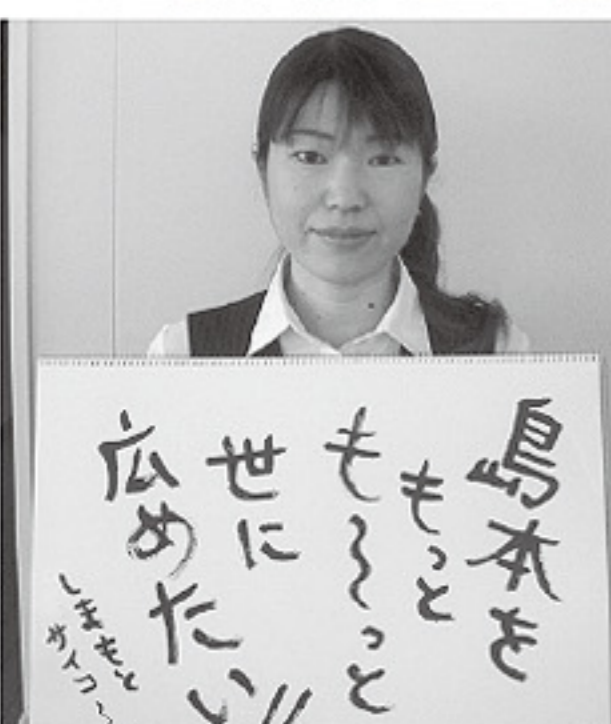 島本を
もっと
も〜〜っと
世に
広めたい!!
しまもと
サイコ〜